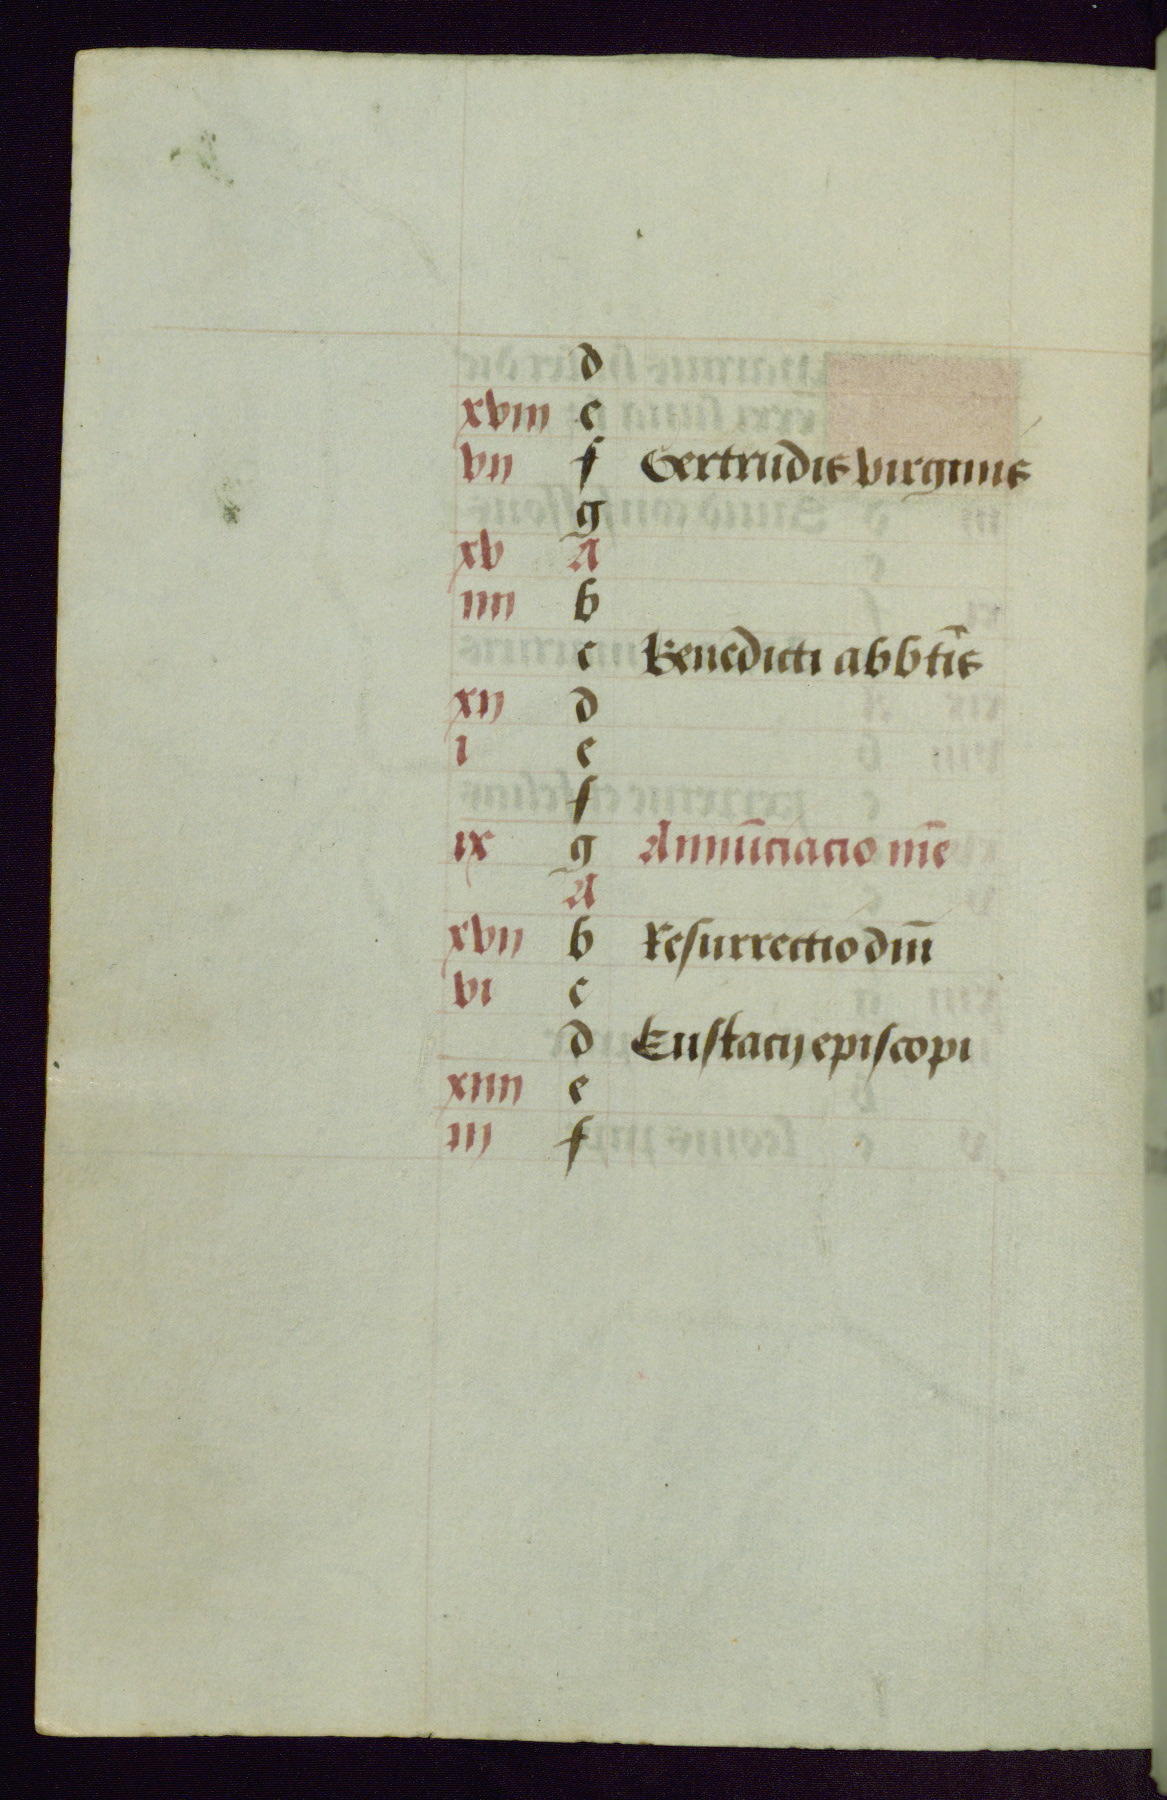 d
xviii e
vii f Gertrudis virginis
g
xv A
iiii b
c Benedicti abbt̄is
xii d
i e
f
ix g Annūciacio m̄e
A
xvii b Resurrectio dm̄
vi c
d Eustacij episcopi
xiiii e
iii f